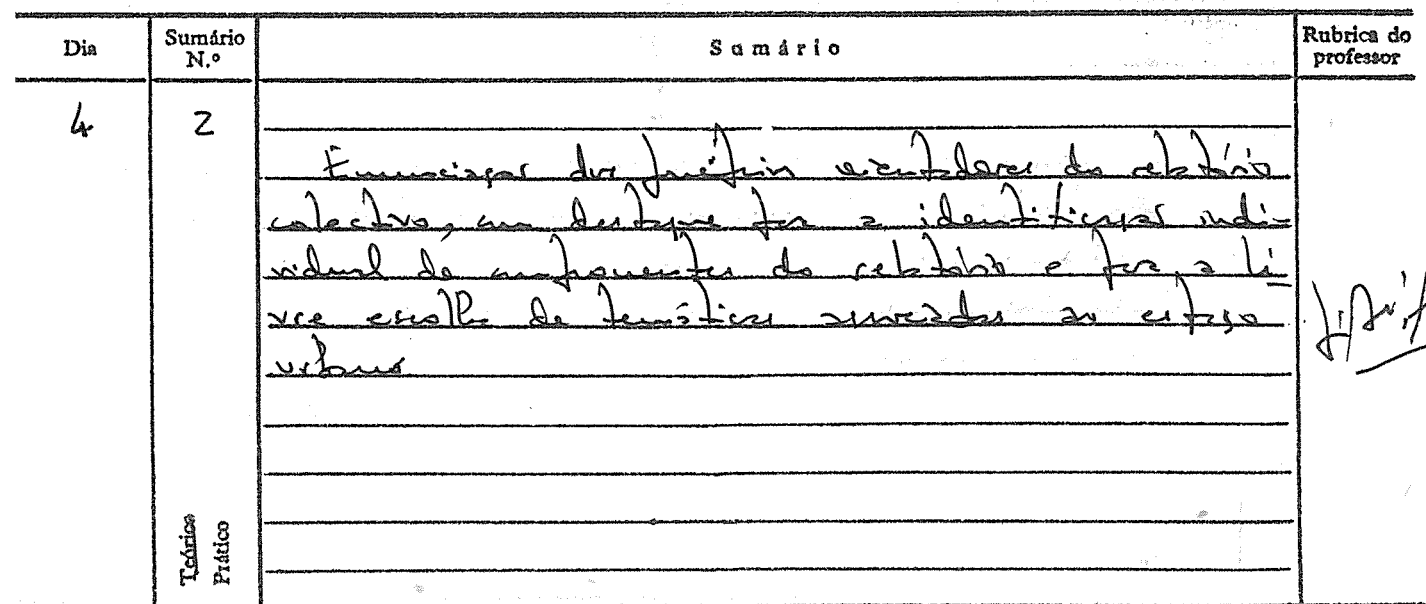 Dia
Sumário
N.º
Sumário
Rubrica do
professor
4
2
Enunciação dos princípios orientadores do relatório
colectivo, com destaque para a identificação indi-
vidual de componentes do relatório e para a li-
vre escolha de temáticas associadas ao espaço
urbano
Teórico
Prático